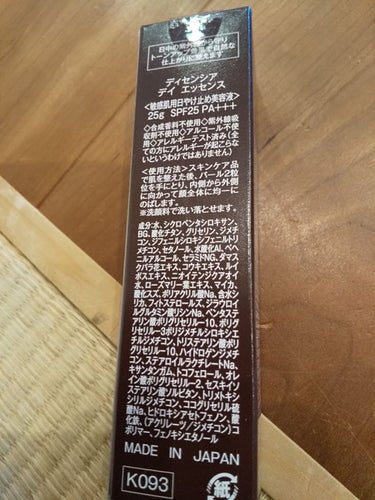 日中の紫外線から守り
トーンアップの素で自然な
仕上がりに整えます
ディセンシア
デイ エッセンス
＜敏感肌用日やけ止め美容液＞
25g SPF25 PA+++
◇合成香料不使用◇紫外線吸
収剤不使用◇アルコール不使
用◇アレルギーテスト済み(全
ての方にアレルギーが起こらな
いというわけではありません)
＜使用方法＞スキンケア品
で肌を整えた後、パール2粒
位を手にとり、内側から外側
に向かって顔全体に均一に
のばします。
※洗顔料で洗い落とせます。
成分:水、シクロペンタシロキサン、
BG、酸化チタン、グリセリン、ジメチ
コン、ジフェニルシロキシフェニルトリ
メチコン、セタノール、水酸化Al、ベ
ヘニルアルコール、セラミドNG、ダマス
クバラ花エキス、コウキエキス、ルイ
ボスエキス、ニオイテンジクアオイ
水、ローズマリー葉エキス、マイカ、
酸化スズ、ポリアクリル酸Na、含水シリ
カ、フィトステロールズ、ジラウロイ
ルグルタミン酸リシンNa、ペンタステ
アリン酸ポリグリセリル-10、ポリグ
リセリル-3ポリジメチルシロキシエ
チルジメチコン、トリステアリン酸ポ
リグリセリル-10、ハイドロゲンジメチ
コン、ステアロイルラクチレートNa、
キサンタンガム、トコフェロール、オレ
イン酸ポリグリセリル-2、セスキイソ
ステアリン酸ソルビタン、トリメトキシ
シリルジメチコン、ココグリセリル硫
酸Na、ヒドロキシアセトフェノン、酸
化鉄、(アクリレーツ/ジメチコン)コポ
リマー、フェノキシエタノール
MADE IN JAPAN
K093
紙